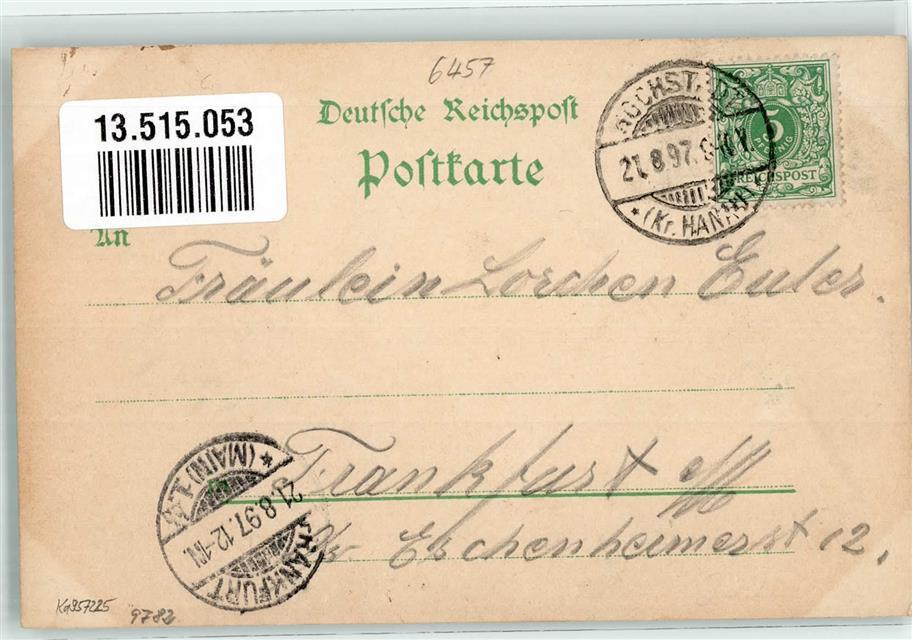 6457
13.515.053
Deutsche Reichspost
Postkarte
HOCHST.
21.8.97.
* (Kr. HANAU)
5
REICHSPOST
An
Fräulein Lorchen Euler.
Frankfurt M
Eschenheimerst 12.
FRANKFURT
21.8.97.12-1N.
* (MAIN) 1.
9782